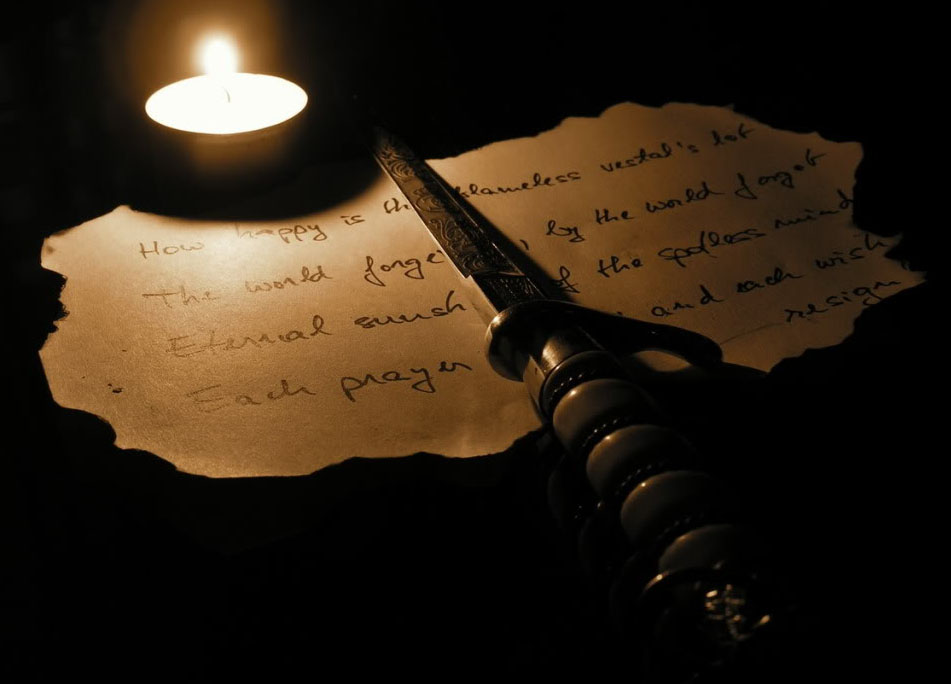 How happy is th blameless vestal's lot
The world forge , by the world forgot
Eternal sunsh f the spotless mind
Each prayer , and each wish
resign